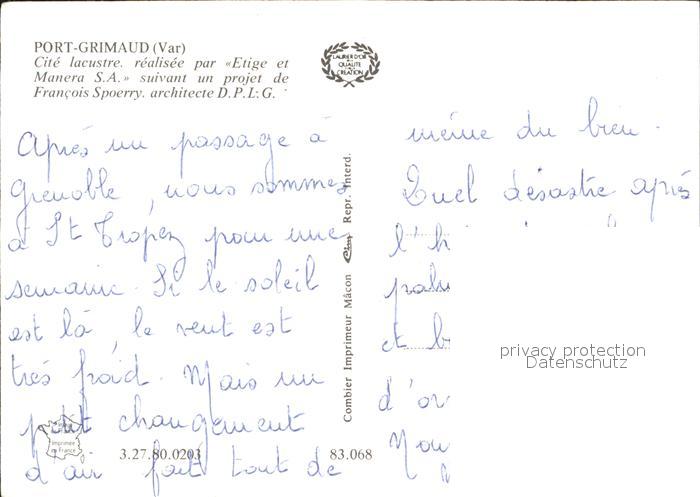 PORT-GRIMAUD (Var)
Cité lacustre. réalisée par «Etige et
Manera S.A.» suivant un projet de
François Spoerry. architecte D.P.L.G.
LAURIER D'OR
DE LA
QUALITÉ
CRÉATION
Après un passage à
Grenoble, nous sommes
à St Tropez pour une
semaine. Si le soleil
est là, le vent est
très froid. Mais un
petit changement
d'air fait tout de
Imprimée
en France
3.27.80.0203
83.068
Combier Imprimeur Mâcon Cim Repr. Interd.
même du bien.
Quel désastre après
l'h
et b
d'or
privacy protection
Datenschutz